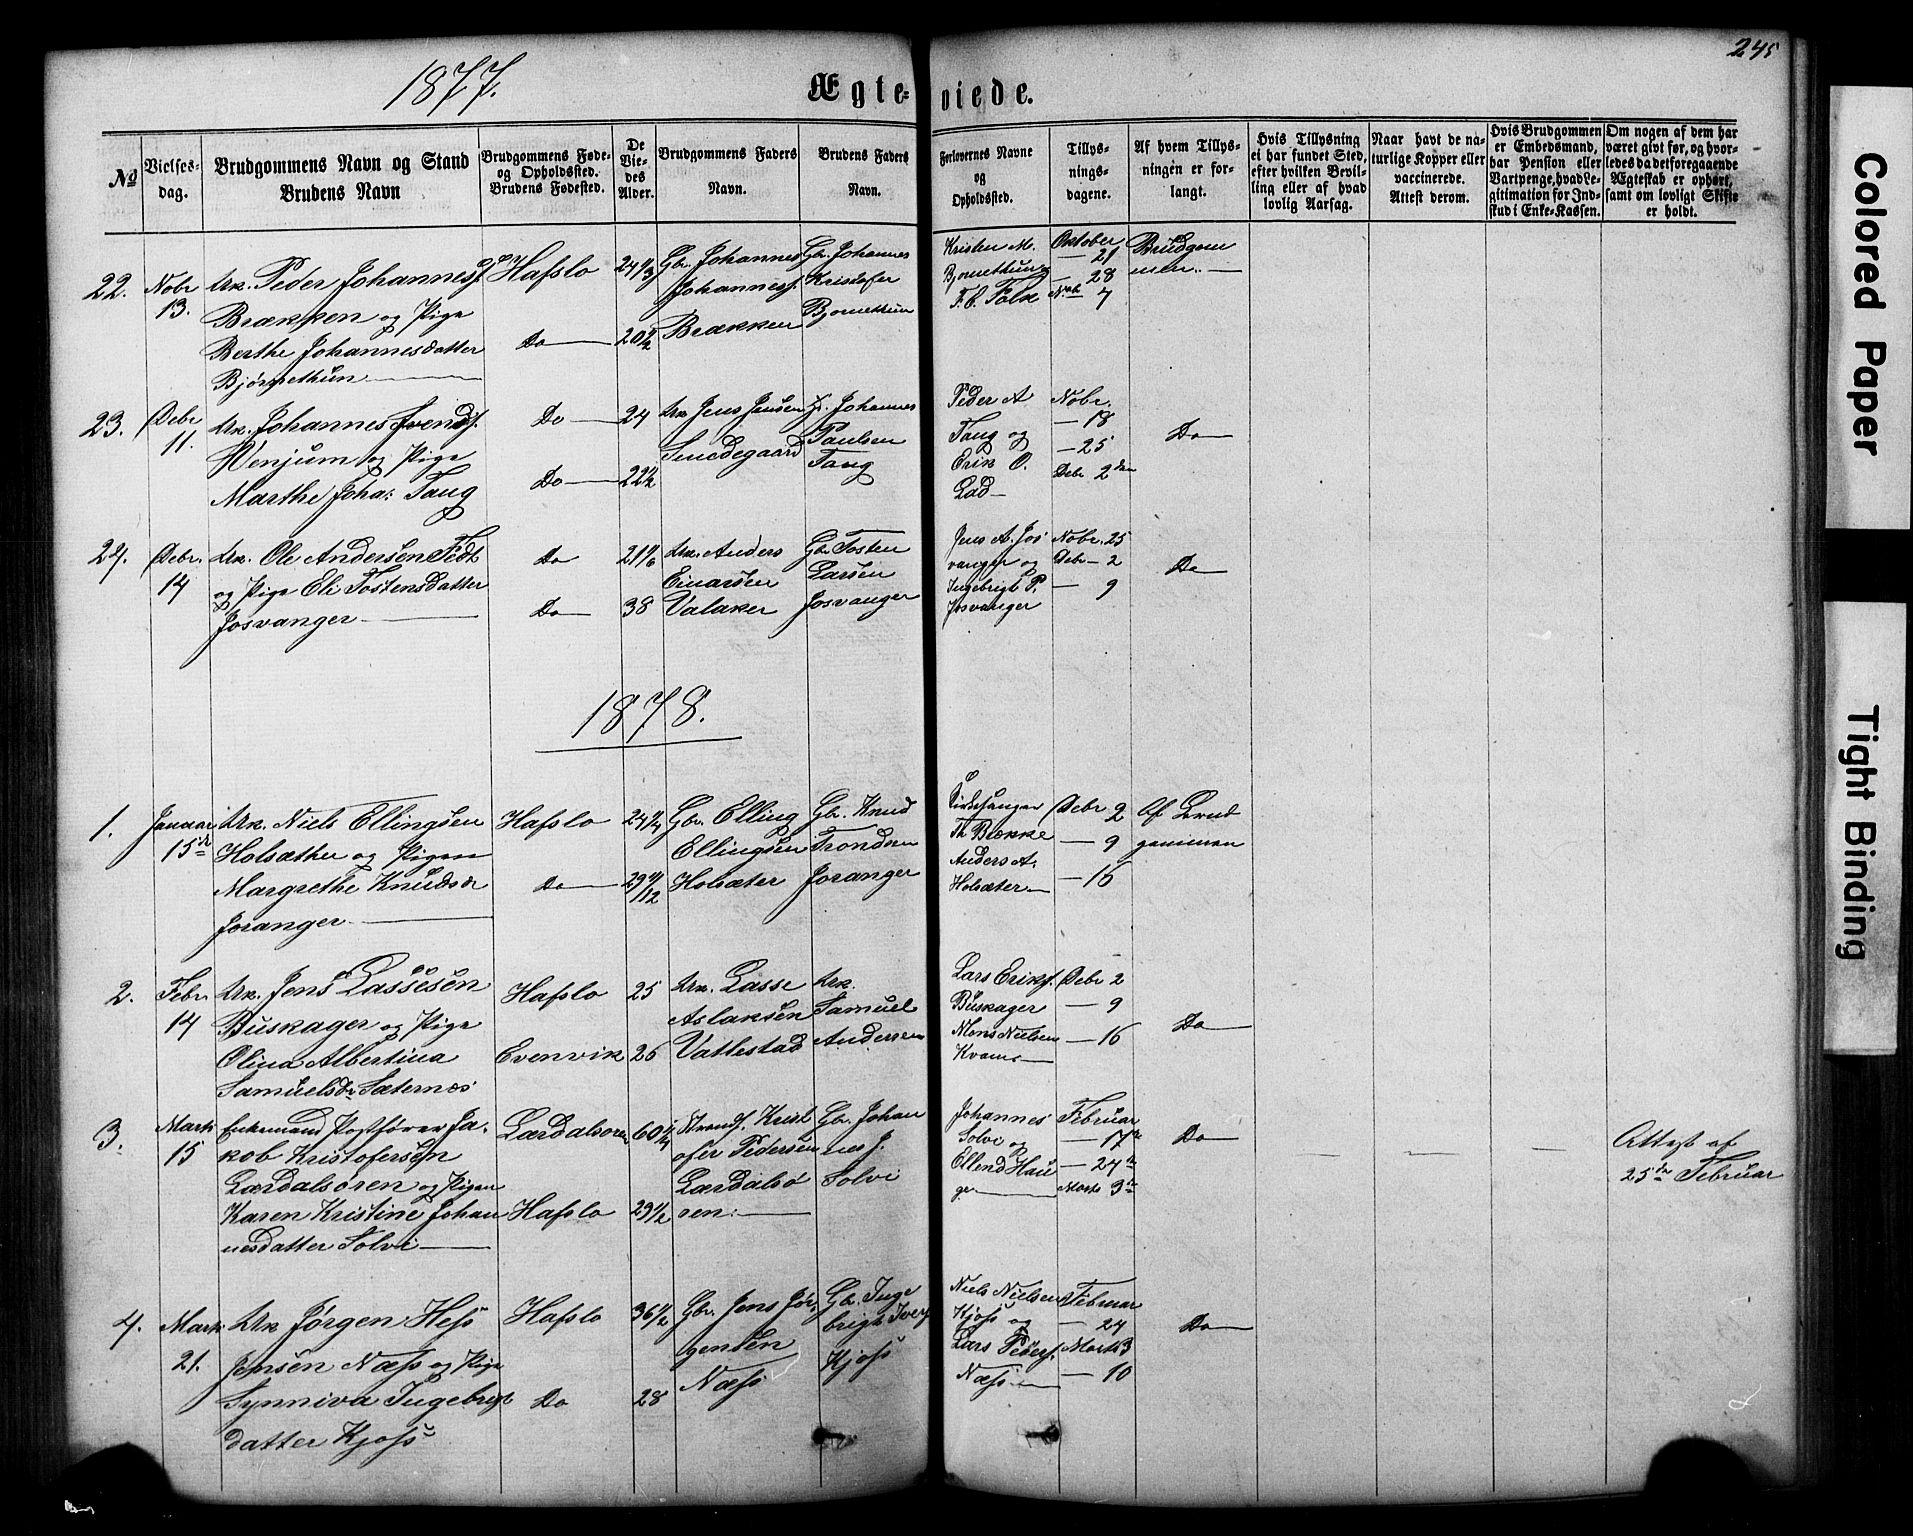 245
1877.
Ægte-viede.
No
Vielses-
dag.
Brudgommens Navn og Stand
Brudens Navn
Brudgommens Føde-
og Opholdssted.
Brudens Fødested.
De
Vie-
des
Alder.
Brudgommens Faders
Navn.
Brudens Faders
Navn.
Forlovernes Navne
og
Opholdssted.
Tillys-
nings-
dagene.
Af hvem Tillys-
ningen er for-
langt.
Hvis Tillysning
ei har fundet Sted,
efter hvilken Bevil-
ling eller af hvad
lovlig Aarsag.
Naar havt de na-
turlige Kopper eller
vaccinerede.
Attest derom.
Hvis Brudgommen
er Embedsmand,
har Pension eller
Vartpenge, hvad Le-
gitimation for Ind-
skud i Enke-Kassen.
Om nogen af dem har
været givt før, og hvor-
ledes da det foregaaende
Ægteskab er ophørt,
samt om lovligt Skifte
er holdt.
22.
Nobr
13.
Uk. Peder Johannesf.
Brækken og Pige
Berthe Johannesdatter
Bjørnethun
Hafslo
Do
24 1/3
20 1/2
Gbr. Johannes
Johannesf.
Brækken
Gb. Johannes
Kristofer
Bjørnethun
Kristen M.
Bjørnethun
T. C. Falk
Oktober
— 21
— 28
Nobr 7
Brudgom
men. —
23.
Debr
11.
Uk. Johannes Svendsf.
Wenjum og Pige
Marthe Joha: Tang
Do
Do
24
22 1/4
Uk Jens Jensen
Smedegaard
Johannes
Paulsen
Tang
Peder A
Tang og
Erik O.
Lad
Nobr.
— 18
— 25
Debr 2den
Do
24.
Debr.
14
Uk. Ole Andersen Fedt
og Pige Eli Tostensdatter
Josvanger
Do
Do
21 1/6
38
Uk. Anders
Einarsen
Valaker
Gb. Tosten
Larsen
Josvanger
Jens A. Jos
vanger og
Ingebrigt P.
Josvanger
Nobr. 25
Debr — 2
— 9
Do
1878.
1.
Januar
15de
Uk. Niels Ellingsen
Holsæther og Pigen
Margrethe Knudsdr
Joranger
Hafslo
Do
24 1/4
29 /12
Gbr. Elling
Ellingsen
Holsæter
Gb. Knud
Trondsen
Joranger
Kirkesanger
Th Brække
Anders A.
Holsæter
Debr 2
— 9
— 16
Af Brud
gommen
2.
Febr
14
Uk. Jens Lassesen
Buskager og Pige
Olina Albertina
Samuelsdr Sæternes
Hafslo
Evenvik
25
26
Uk. Lasse
Aslaksen
Vatlestad
Uk.
Samuel
Andersen
Lars Eriksf.
Buskager
Mons Nielsen
Kvams
Debr 2
— 9
— 16
Do
3.
Marts
15
Enkemand Postfører Ja-
kob Kristofersen
Lærdalsøren og Pigen
Karen Kristine Johan
nesdatter Solvi
Lærdalsøren
Hafslo
60 1/4
29 1/2
Strands. Krist
ofer Pedersen
Lærdalsø
ren.
Gbr. Johan
nes J.
Solvi
Johannes
Solvi og
Ellend Hau
ge
Februar
— 17de
— 24de
Marts 3de
Do
Attest af
25de Februar
4.
Marts
21.
Uk Jørgen Hess
Jensen Næss og Pige
Synniva Ingebrigt
datter Kjoss
Hafslo
Do
36 1/2
28
Gbr. Jens Jør
gensen
Næss
Gb. Inge
brigt Iversf
Kjoss
Niels Nielsen
Kjoss og
Lars Pedersf.
Næss
Februar
— 24
Marts 3
— 10
Do
Colored Paper
Tight Binding